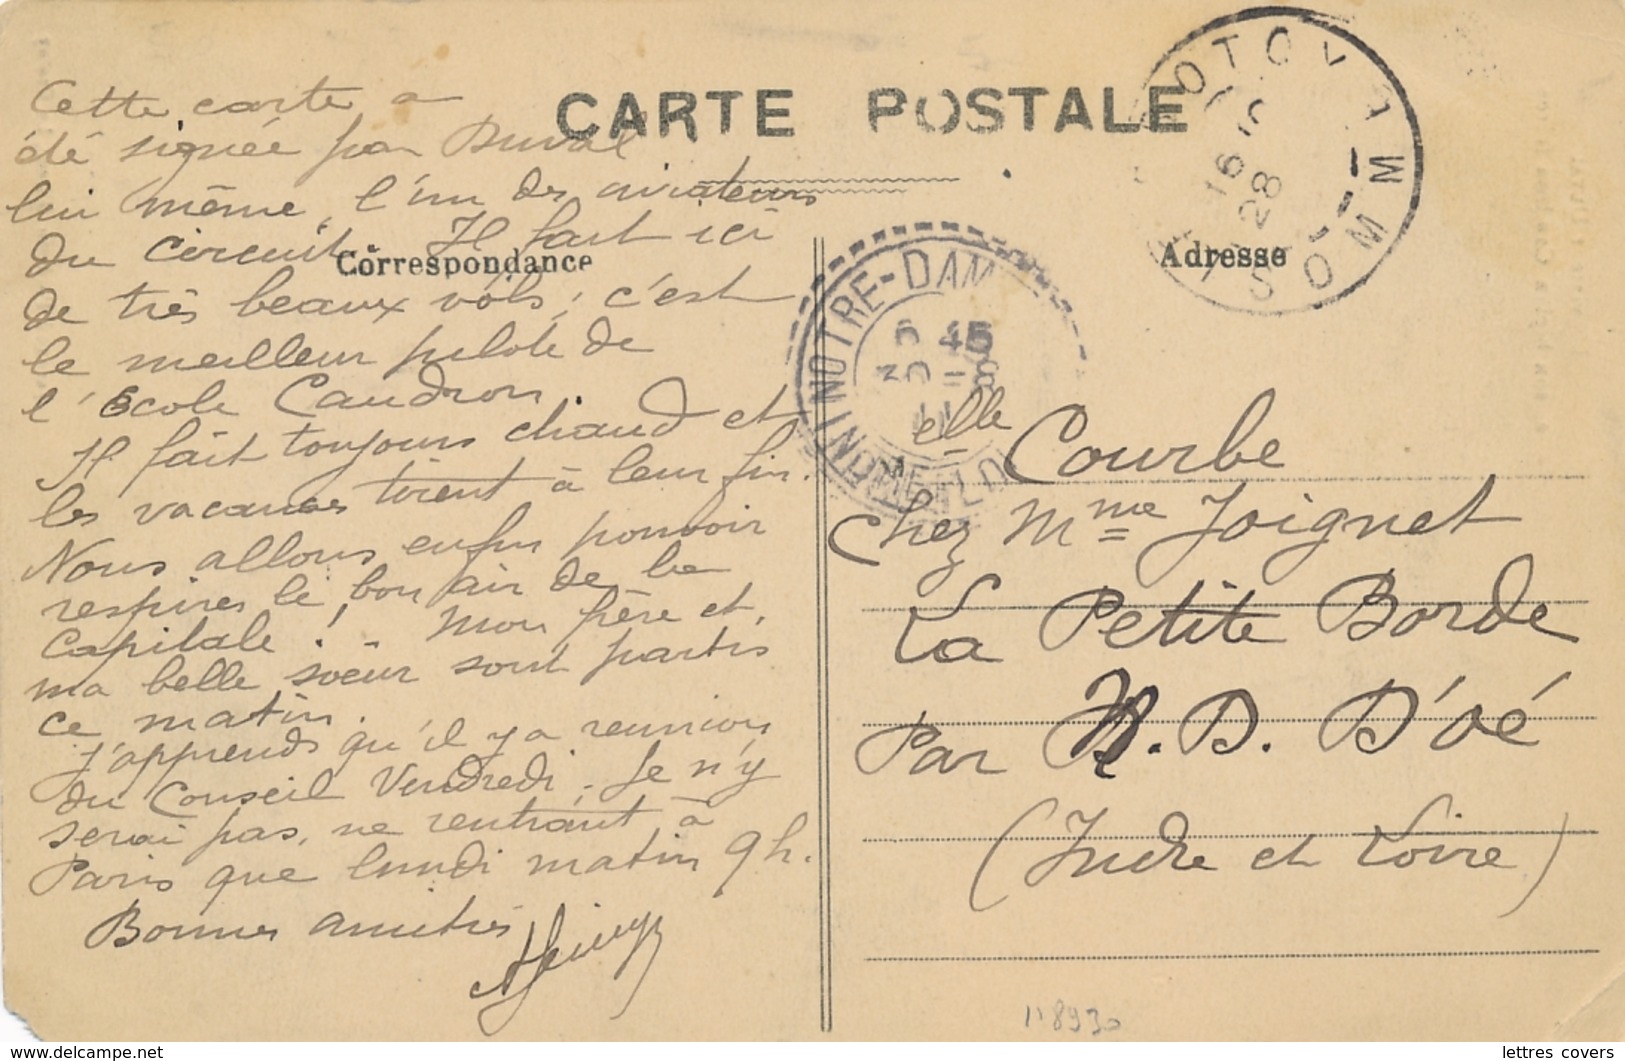 CARTE POSTALE
Correspondance
Adresse
Cette carte a
été signée par Duval
lui même, l'un des aviateurs
du circuit. Il fait ici
de très beaux vols ; c'est
le meilleur pilote de
l'École Caudron.
Il fait toujours chaud et
les vacances tirent à leur fin.
Nous allons enfin pouvoir
respirer le bon air de la
Capitale ! - Mon frère et
ma belle sœur sont partis
ce matin.
J'apprends qu'il y a reunion
du Conseil Vendredi. Je n'y
serai pas, ne rentrant à
Paris que lundi matin 9h.
Bonnes amitiés
Melle Courbe
Chez Mme Joignet
La Petite Borde
Par N. D. D'oé
(Indre et Loire)
NOTRE-DAM
6 45
30 -8
11
INDRE-ET-LOI
OTOY
16
28
SOMME
118930
lettres covers